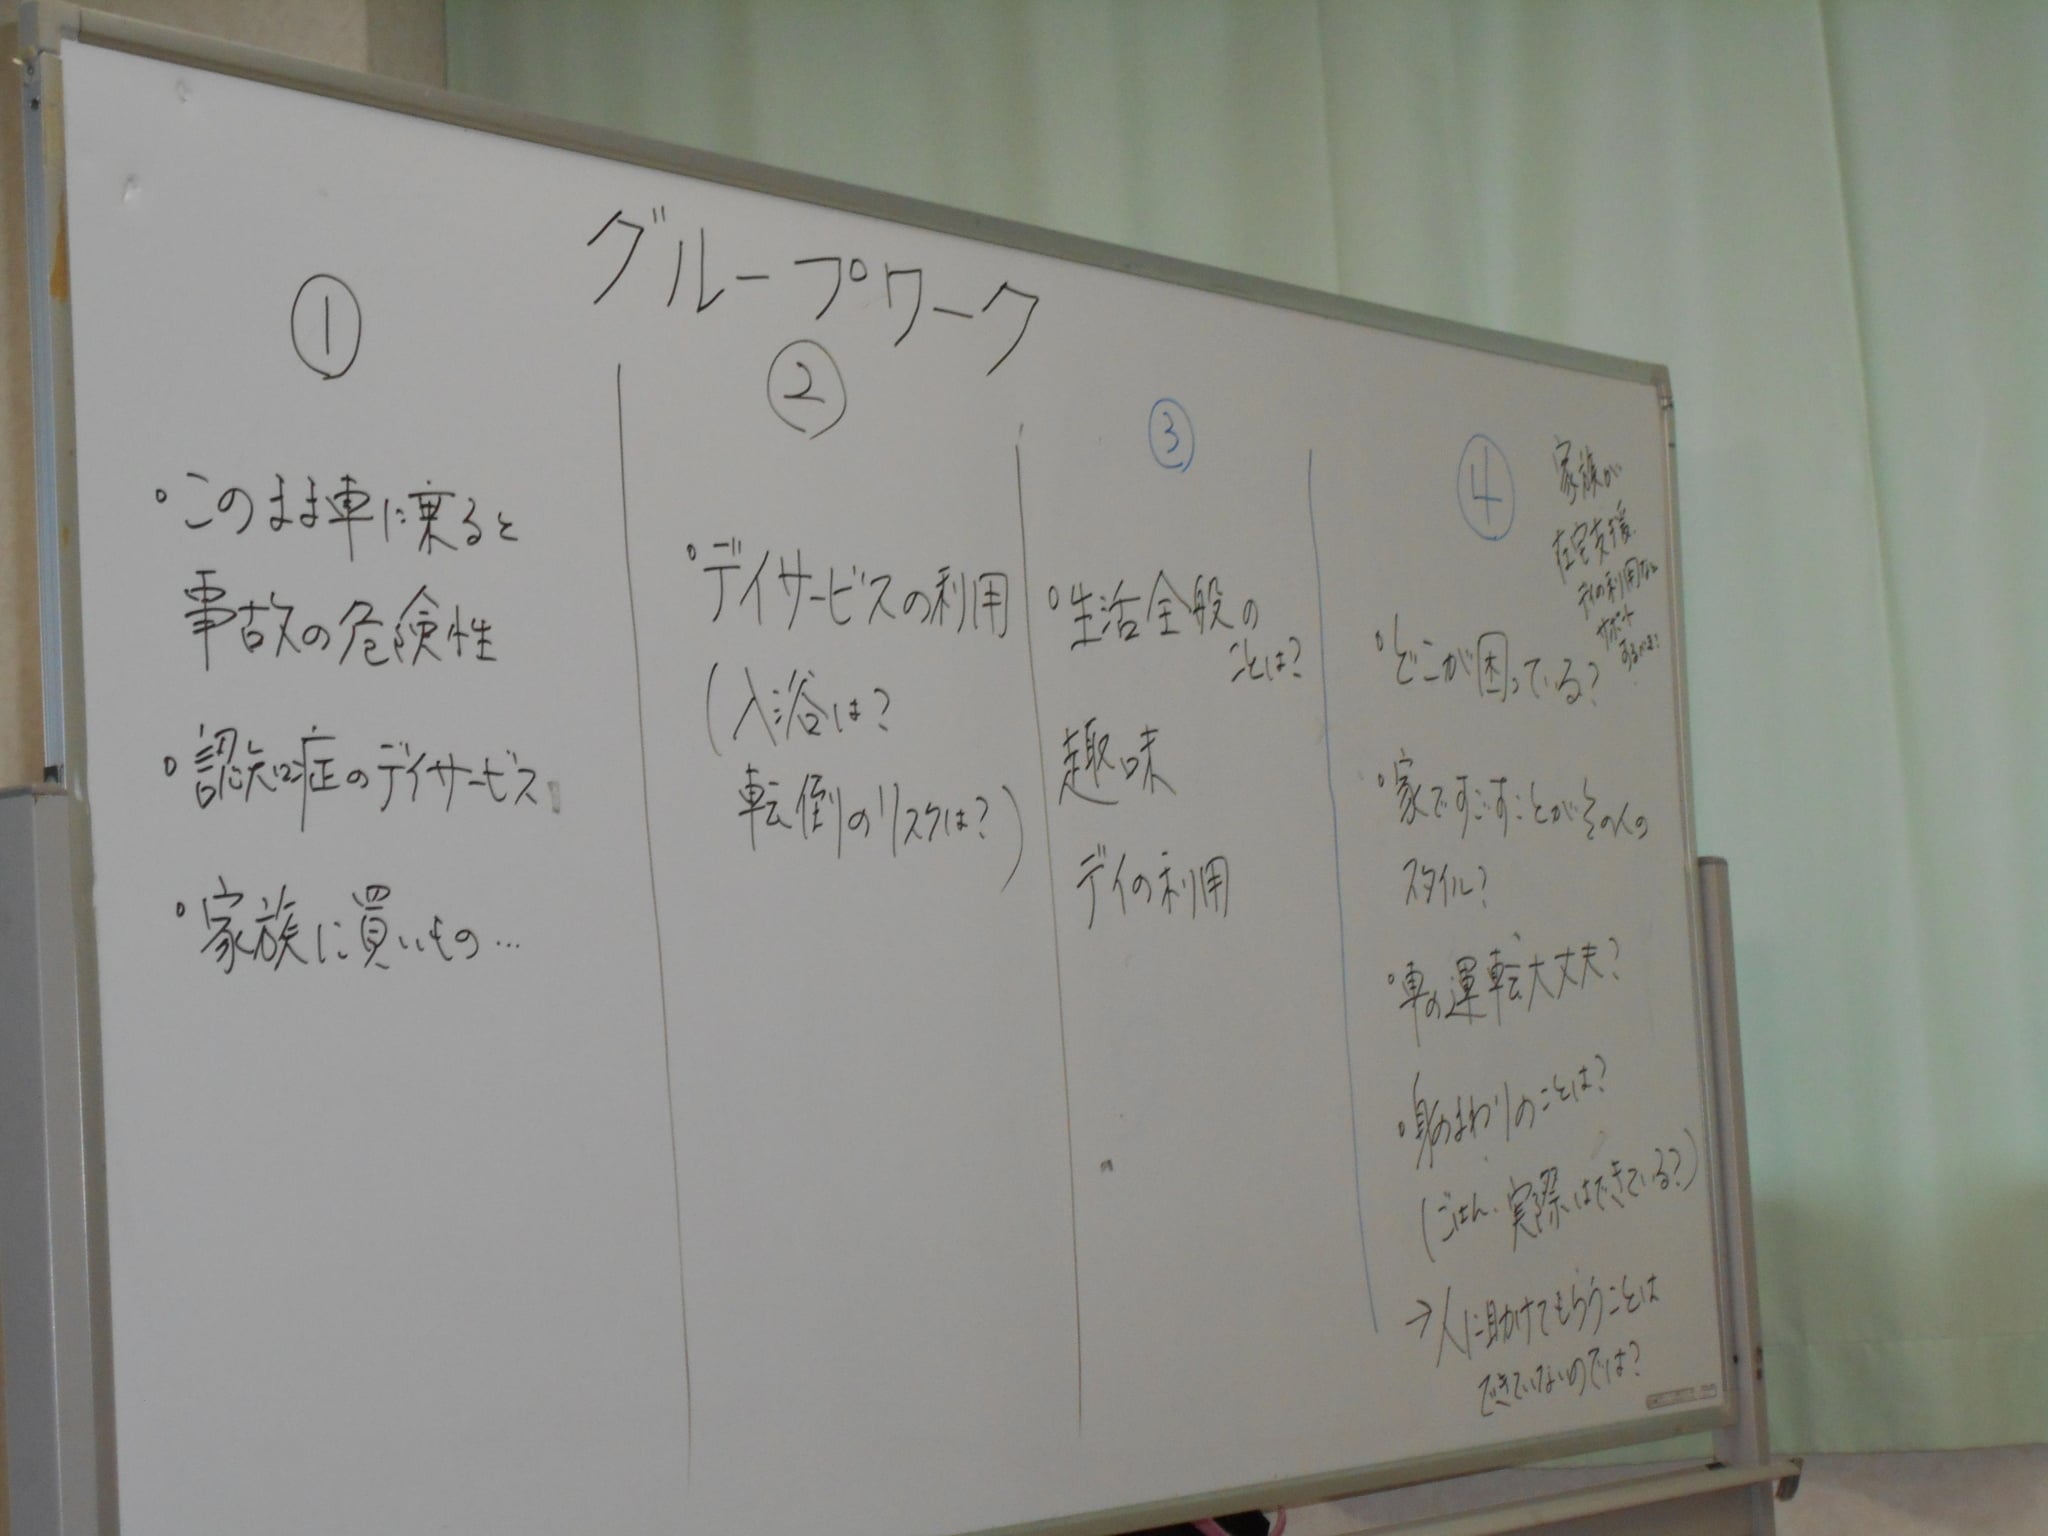 グループワーク
①
・このまま車に乗ると
事故の危険性
・認知症のデイサービス
・家族に買いもの…
②
・デイサービスの利用
(入浴は?
転倒のリスクは?)
③
・生活全般の
ことは?
趣味
デイの利用
④
家族が
在宅支援
デイの利用など
サポート
・どこが困っている?
・家ですごすことがその人の
スタイル?
・車の運転大丈夫?
・身のまわりのことは?
(ごはん、実際はできている?)
→人に助けてもらうことは
できていないのでは?